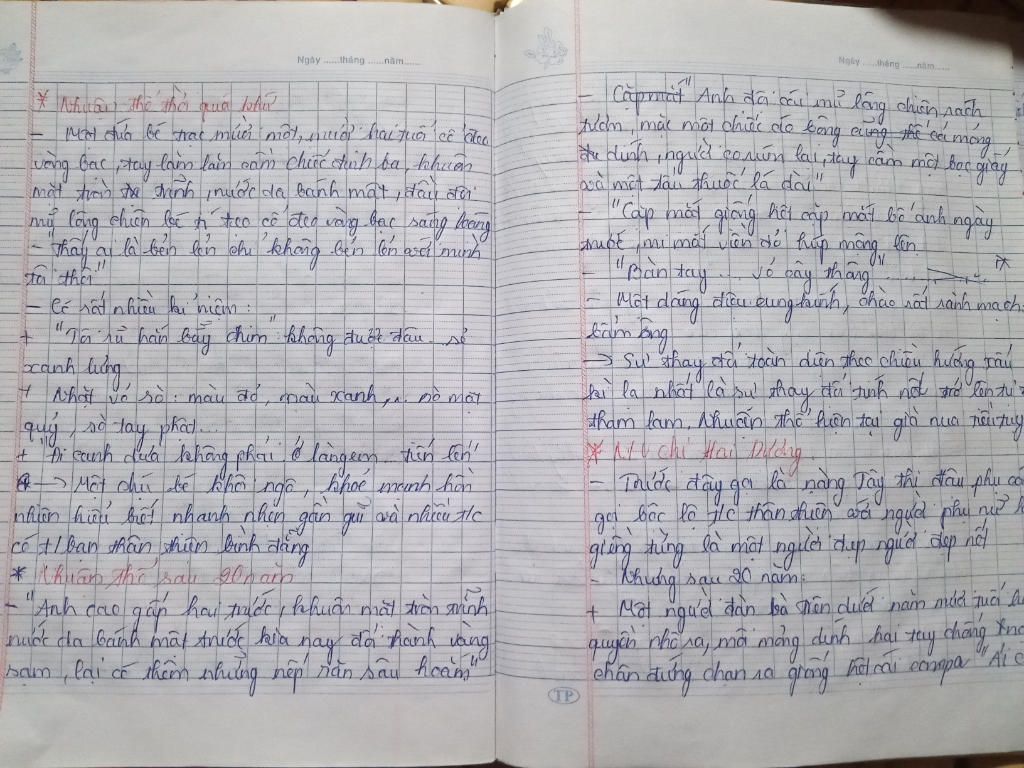 Ngày ......tháng ......năm......
* Nhuận thổ thời quá khứ
- Một đứa bé trạc mười một, mười hai tuổi cổ đeo
vòng bạc, tay lăm lăm cầm chiếc đinh ba, khuôn
mặt tròn trĩnh, nước da bánh mật, đầu đội
mũ lông chiên bé tí teo cổ đeo vòng bạc sáng loáng
- thấy ai là bẽn lẽn chỉ không bẽn lẽn với mình
tôi thôi"
- Có rất nhiều kỉ niệm:
+ "Tôi rủ hắn bẫy chim" không được đâu
xanh lưng
+ Nhặt vỏ sò: màu đỏ, màu xanh,... sò mặt
quỷ, sò tay phật...
+ "Đi canh dưa không phải ở làng em... tiến lên"
-> Một chú bé khôi ngô, khoẻ mạnh hồn
nhiên hiểu biết nhanh nhẹn gần gũi và nhiều t/c
có t/c bạn thân thiện bình đẳng
* Nhuận thổ sau 20 năm
- "Anh cao gấp hai trước, khuôn mặt tròn trĩnh
nước da bánh mật trước kia nay đổi thành vàng
sạm, lại có thêm những nếp răn sâu hoắm"
Ngày ......tháng ......năm......
- Cặp mắt" Anh đội cái mũ lông chiên rách
tươm, mặc một chiếc áo bông mỏng
dính, người co rúm lại, tay cầm một bọc giấy
và một tẩu thuốc lá dài"
- "Cặp mắt giống hệt cặp mắt bố anh ngày
trước, mi mắt viền đỏ húp mọng lên
- "Bàn tay ... vỏ cây thông"
- Một dáng điệu cung kính, chào rất rành mạch
bẩm ông
-> Sự thay đổi toàn diện theo chiều hướng xấu
kì lạ nhất là sự thay đổi tính nết trở lên tự
tham lam, Nhuận thổ hiện tại già nua tiều tuỵ
* NV chị Hai Dương
- Trước đây gọi là nàng Tây thi đậu phụ
gọi bộc lộ t/c thân thiện với người phụ nữ
giềng từng là một người đẹp người đẹp nết
- Nhưng sau 20 năm:
+ Một người đàn bà trên dưới năm mươi tuổi
quyền nhô ra, môi mỏng dính hai tay chống
chân đứng chạn ra giống hệt cái compa "Ái
TP